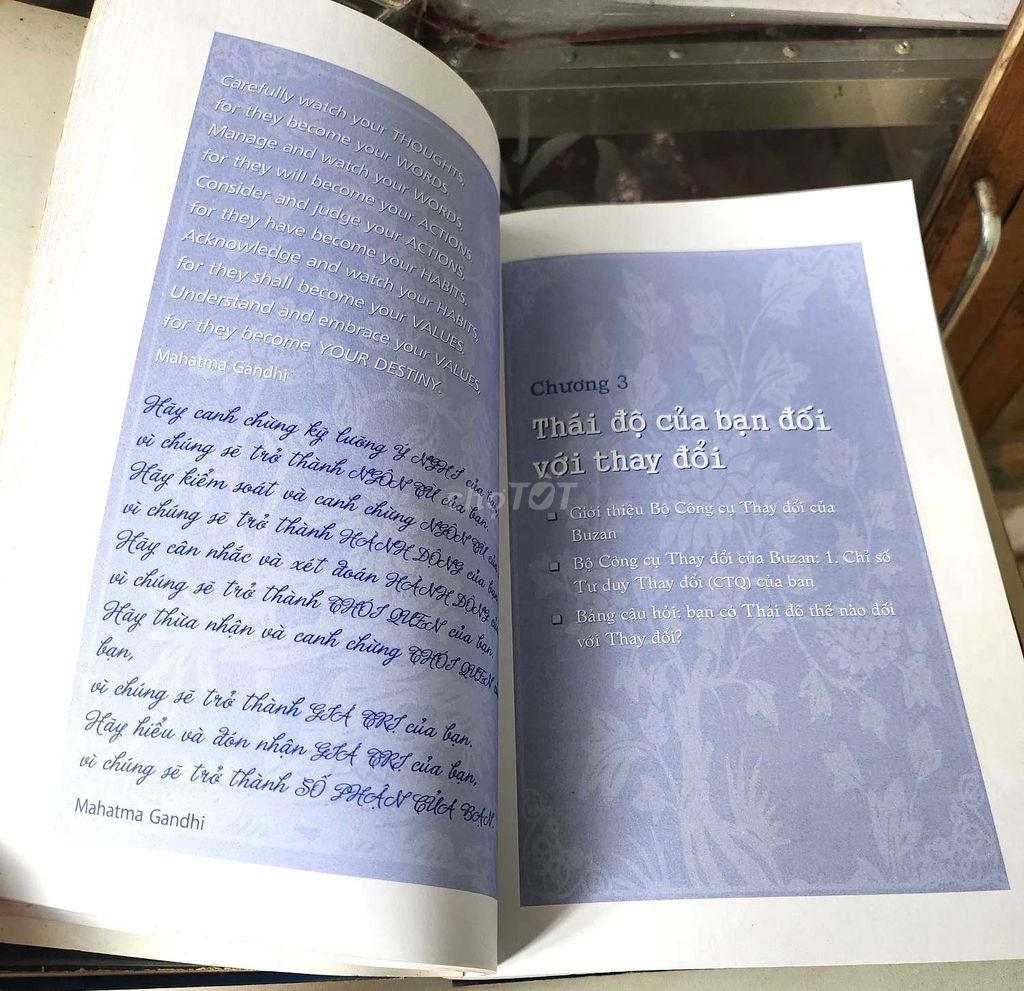 Carefully watch your THOUGHTS,
for they become your WORDS.
Manage and watch your WORDS,
for they will become your ACTIONS.
Consider and judge your ACTIONS,
for they have become your HABITS.
Acknowledge and watch your HABITS,
for they shall become your VALUES.
Understand and embrace your VALUES,
for they become YOUR DESTINY.
Mahatma Gandhi
Hãy canh chừng kỹ lưỡng Ý NGHĨ của
vì chúng sẽ trở thành NGÔN TỪ của bạn.
Hãy kiểm soát và canh chừng NGÔN TỪ của
vì chúng sẽ trở thành HÀNH ĐỘNG của bạn.
Hãy cân nhắc và xét đoán HÀNH ĐỘNG
vì chúng sẽ trở thành THÓI QUEN của bạn.
Hãy thừa nhận và canh chừng THÓI QUEN
bạn,
vì chúng sẽ trở thành GIÁ TRỊ của bạn.
Hãy hiểu và đón nhận GIÁ TRỊ của bạn,
vì chúng sẽ trở thành SỐ PHẬN CỦA BẠN.
Mahatma Gandhi
Chương 3
Thái độ của bạn đối
với thay đổi
Giới thiệu Bộ Công cụ Thay đổi của
Buzan
Bộ Công cụ Thay đổi của Buzan: 1. Chỉ số
Tư duy Thay đổi (CTQ) của bạn
Bảng câu hỏi: bạn có Thái độ thế nào đối
với Thay đổi?
chợTỐT